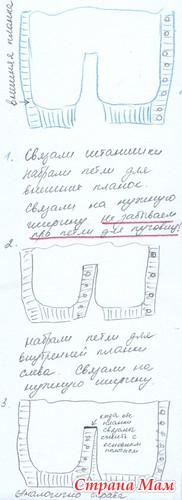 внешняя планка
1. Связали штанишки
набрали петли для
внешних планок.
Связали на нужную
ширину. Не забываем
про петли для пуговиц!
2.
Набрали петли для
внутренней планки
слева. Связали на
нужную ширину
3.
когда обе
планки
связаны
сшить с
основным
полотном
Аналогично справа
Страна Мам